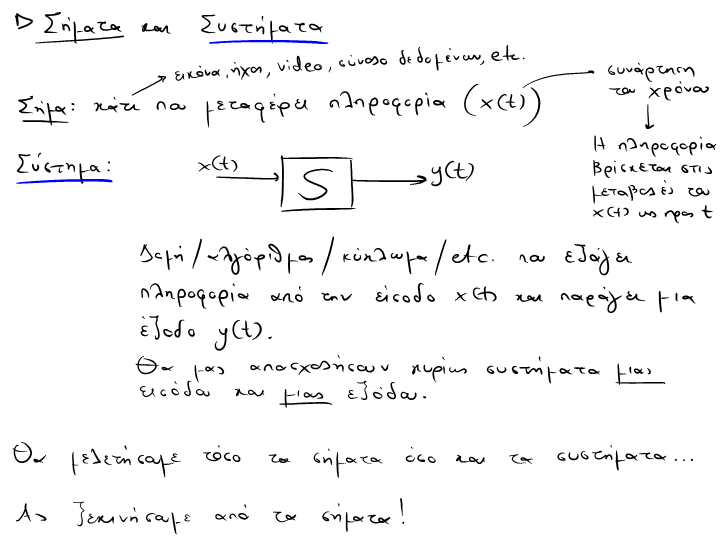 ▷ Σήματα και Συστήματα
εικόνα, ήχος, video, σύνολο δεδομένων, etc.
Σήμα: κάτι που μεταφέρει πληροφορία (x(t))
συνάρτηση
του χρόνου
Η πληροφορία
βρίσκεται στις
μεταβολές του
x(t) ως προς t
Σύστημα: x(t) S y(t)
Δομή/αλγόριθμος/κύκλωμα/etc. που εξάγει
πληροφορία από την είσοδο x(t) και παράγει μια
έξοδο y(t).
Θα μας απασχολήσουν κυρίως συστήματα μιας
εισόδου και μιας εξόδου.
Θα μελετήσουμε τόσο τα σήματα όσο και τα συστήματα...
Ας ξεκινήσουμε από τα σήματα!